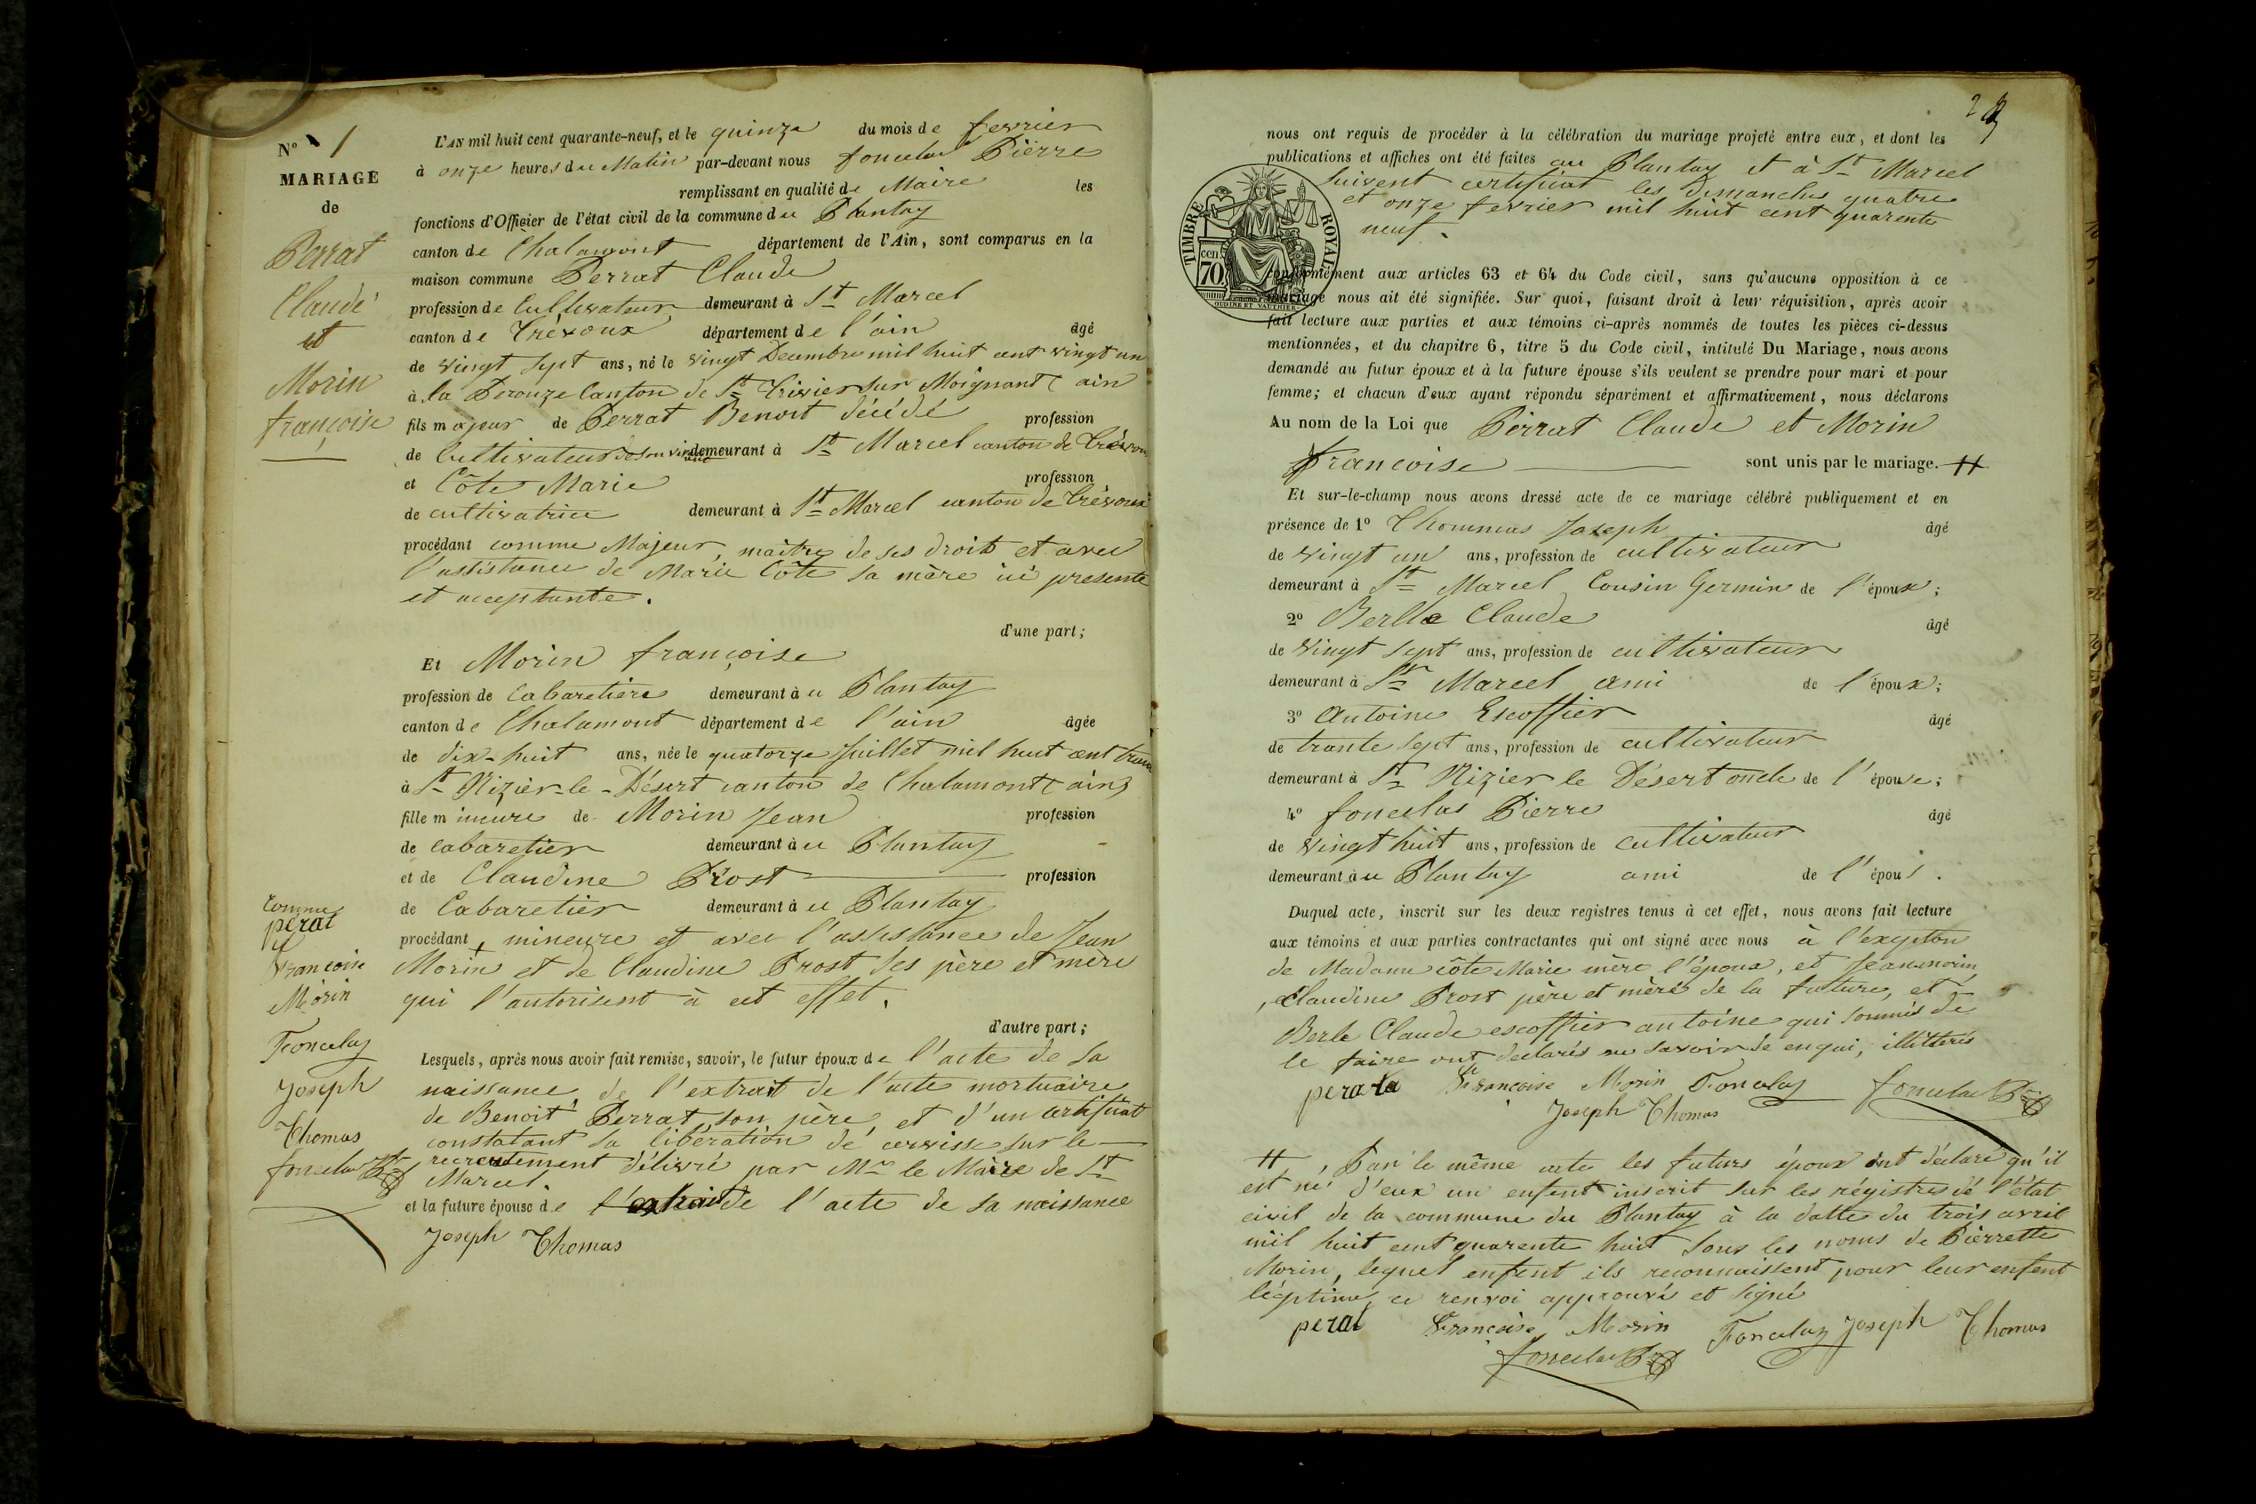 N° 1
MARIAGE
de
Perrat
Claude
et
Morin
françoise
L'AN mil huit cent quarante-neuf, et le quinze du mois de fevrier
à onze heures du Matin par-devant nous foncelas Pierre
remplissant en qualité de Maire les
fonctions d'Officier de l'état civil de la commune du Plantay
canton de Chalamont département de l'Ain, sont comparus en la
maison commune Perrat Claude
profession de Cultivateur demeurant à St Marcel
canton de Trévoux département de l'ain âgé
de vingt sept ans, né le vingt Decembre mil huit cent vingt un
à la Perouze Canton de St Trivier sur Moignant (ain
fils majeur de Perrat Benoit décédé profession
de Cultivateur de son vivant demeurant à St Marcel canton de Trévoux
et Côte Marie profession
de cultivatrice demeurant à St Marcel canton de Trévoux
procédant comme Majeur, maitre de ses droits et avec
l'assistance de Marie Côte sa mère ici presente
et acceptante.
d'une part;
Et Morin françoise
profession de Cabaretière demeurant à u Plantay
canton de Chalamont département de l'ain âgée
de dix-huit ans, née le quatorze Juillet mil huit cent trente
à St Nizier-le-Désert canton de Chalamont (ain)
fille mineure de Morin Jean profession
de Cabaretier demeurant à u Plantay
et de Claudine Prost profession
de Cabaretier demeurant à u Plantay
procédant, mineure et avec l'assistance de Jean
Morin et de Claudine Prost ses père et mère
qui l'autorisent à cet effet.
d'autre part;
Lesquels, après nous avoir fait remise, savoir, le futur époux de l'acte de sa
naissance, de l'extrait de l'acte mortuaire
de Benoit Perrat son père, et d'un certificat
constatant sa libération de servisse sur le
recrutement délivré par Mr le Maire de St
Marcel
et la future épouse de l'extrait de l'acte de sa naissance
Joseph Thomas
perat
francoise
Morin
Foncelas
Joseph
Thomas
foncelas Pre
nous ont requis de procéder à la célébration du mariage projeté entre eux, et dont les
publications et affiches ont été faites au Plantay et à St Marcel
suivent certificat les dimanches quatre
et onze fevrier mil huit cent quarente
neuf.
TIMBRE ROYAL
70 cen
OUDINÉ ET VAUTHIER
conformément aux articles 63 et 64 du Code civil, sans qu'aucune opposition à ce
mariage nous ait été signifiée. Sur quoi, faisant droit à leur réquisition, après avoir
fait lecture aux parties et aux témoins ci-après nommés de toutes les pièces ci-dessus
mentionnées, et du chapitre 6, titre 5 du Code civil, intitulé Du Mariage, nous avons
demandé au futur époux et à la future épouse s'ils veulent se prendre pour mari et pour
femme; et chacun d'eux ayant répondu séparément et affirmativement, nous déclarons
Au nom de la Loi que Pérrat Claude et Morin
francoise sont unis par le mariage. #
Et sur-le-champ nous avons dressé acte de ce mariage célébré publiquement et en
présence de 1° Thommas Joseph âgé
de vingt un ans, profession de cultivateur
demeurant à St Marcel Cousin Germin de l'époux;
2° Berlle Claude âgé
de vingt sept ans, profession de cultivateur
demeurant à St Marcel ami de l'époux;
3° Antoine Escoffier âgé
de trante sept ans, profession de cultivateur
demeurant à St Nizier le Désert oncle de l'épouse;
4° foncelas Pierre âgé
de vingt huit ans, profession de cultivateur
demeurant à u Plantay ami de l'épous.
Duquel acte, inscrit sur les deux registres tenus à cet effet, nous avons fait lecture
aux témoins et aux parties contractantes qui ont signé avec nous à l'exeption
de Madame côte Marie mère l'époux, et Jean morin
, Claudine Prost père et mère de la future, et
Berle Claude escoffier antoine qui sommés de
le faire ont declarés ne savoir de enqui, illitterés
perata francoise Morin Foncelas foncelas Pre
Joseph Thomas
# Par le même acte les futurs époux ont déclaré qu'il
est né d'eux un enfent inscrit sur les régistres dé l'état
civil de la commune du Plantay à la datte du trois avril
mil huit cent quarente huit sous les noms de Piérrette
Morin, lequel enfent ils reconnaissent pour leur enfent
légitime, ce renvoi approuvé et signé
perat francoise Morin Foncelas Joseph Thomas
foncelas Pre